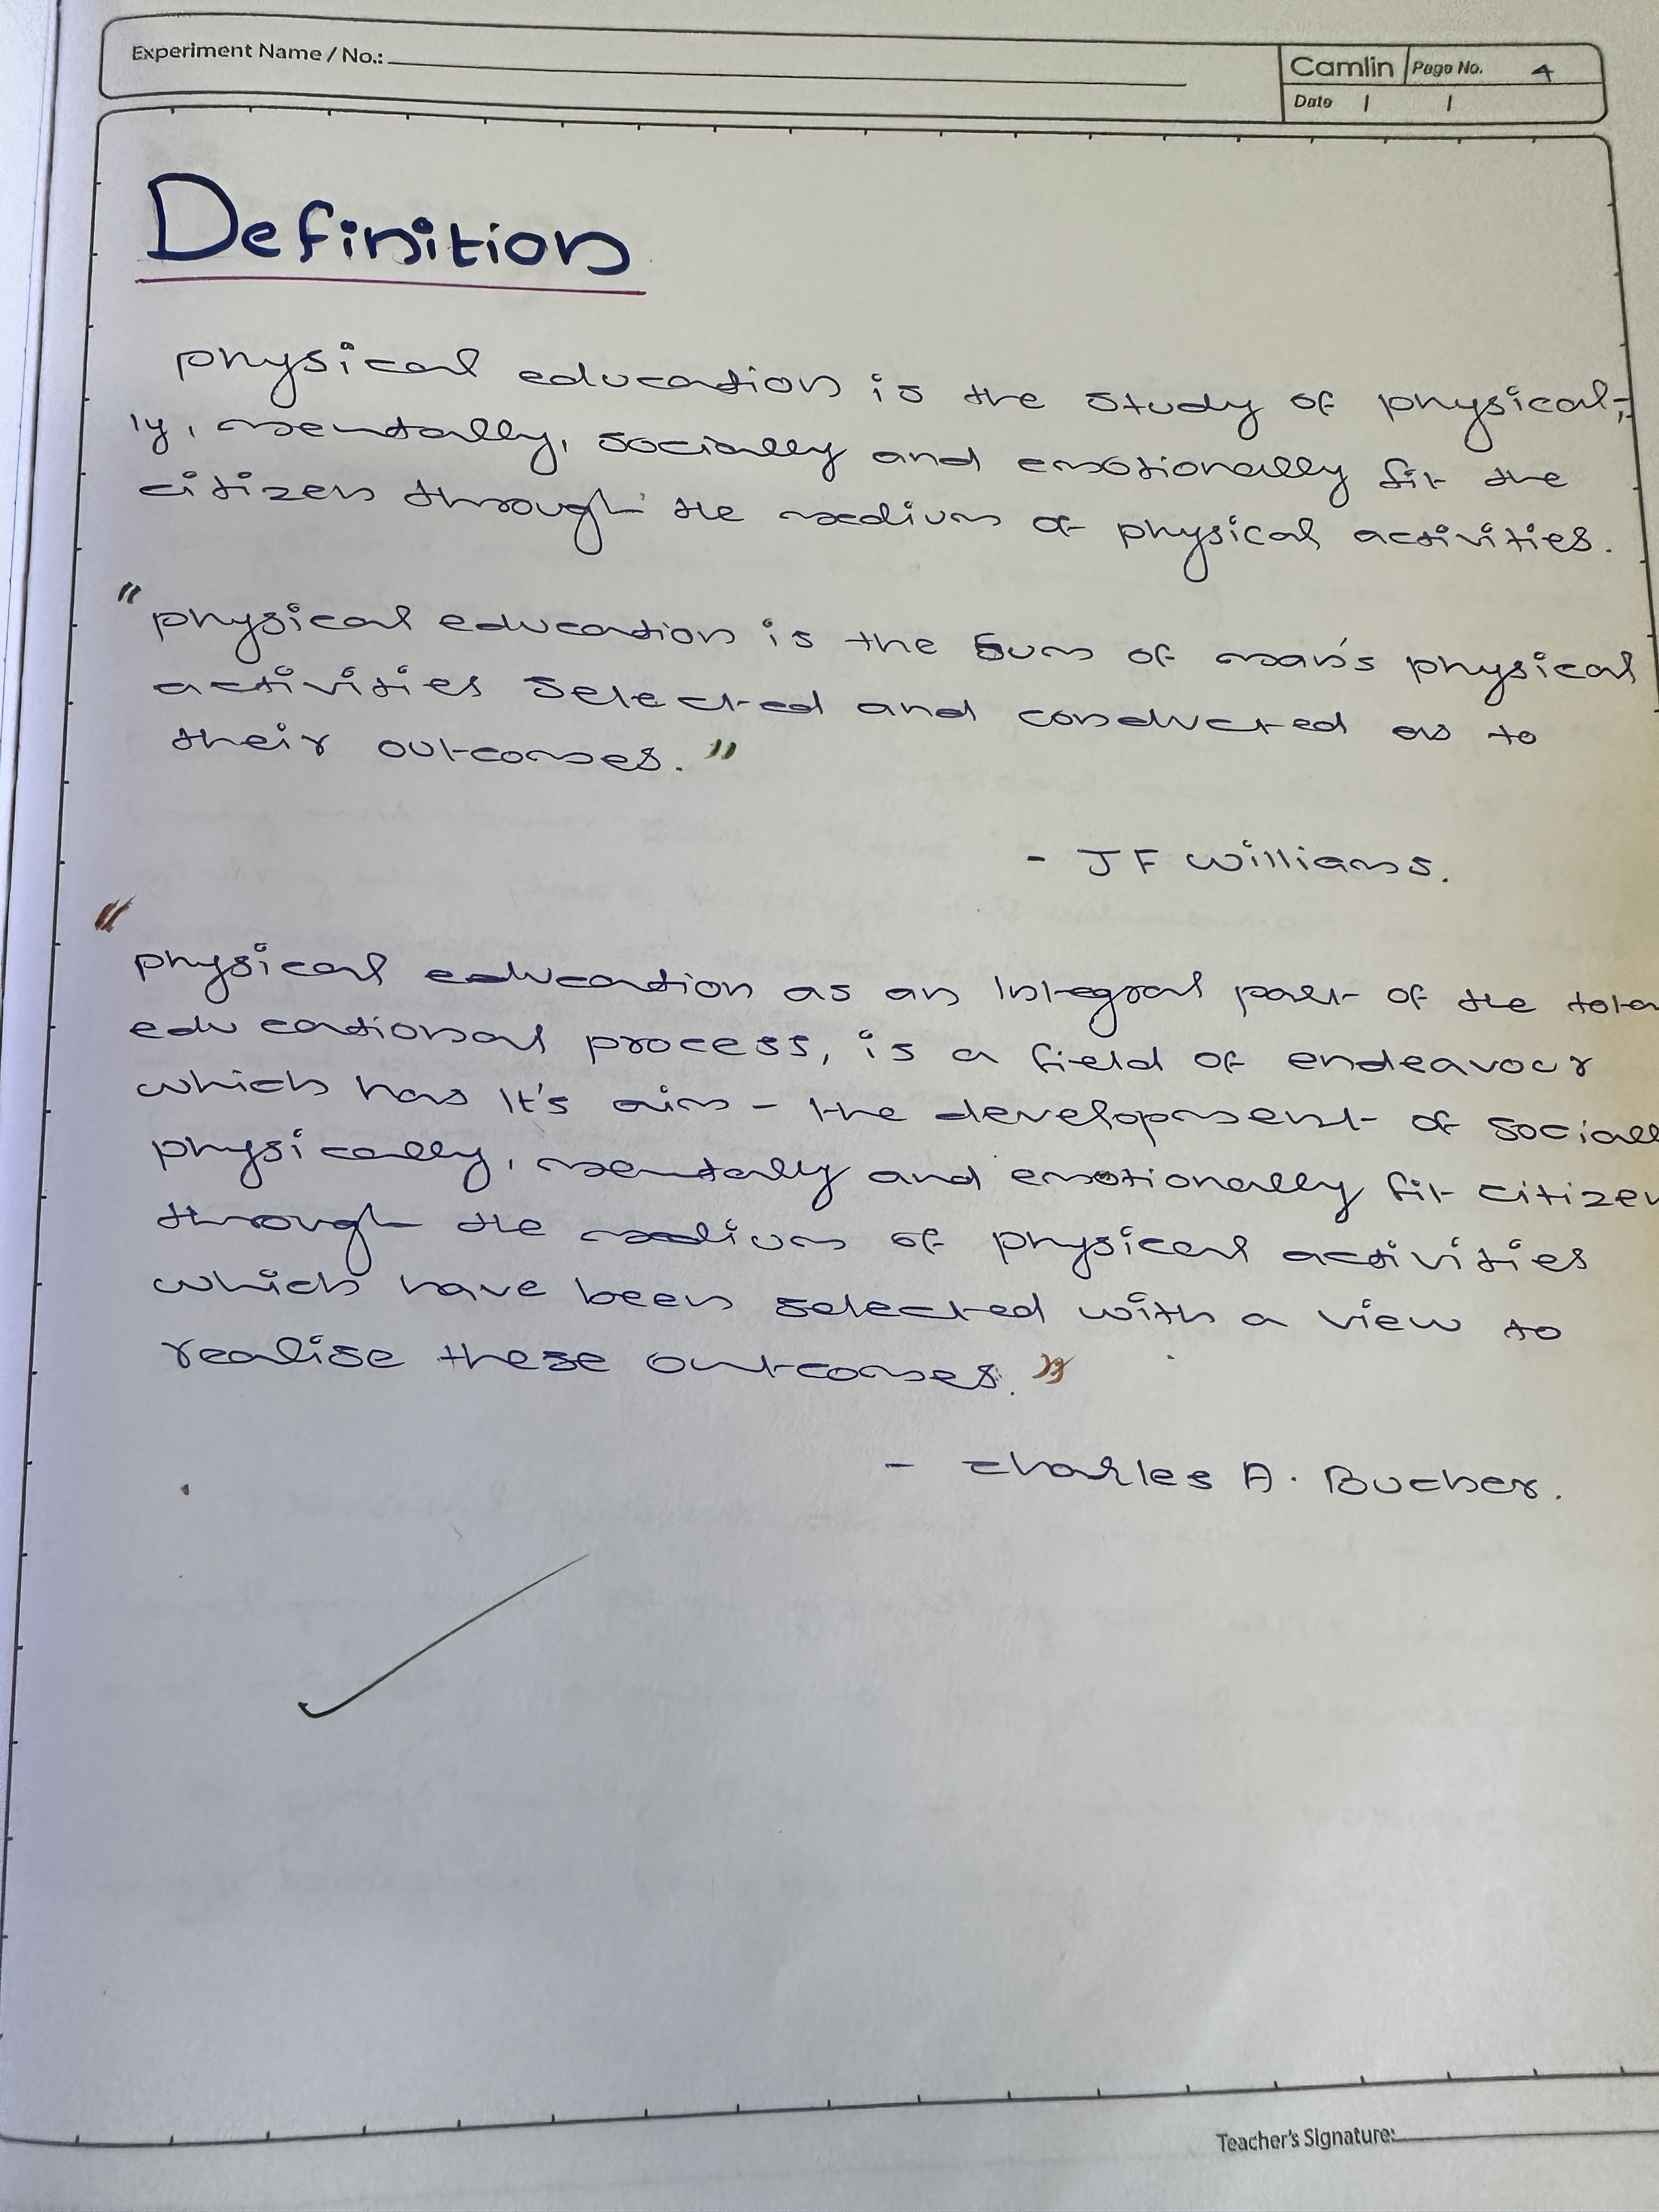 Experiment Name / No.:
Camlin Page No. 4
Date / /
Definition
physical education is the study of physical-
ly, mentally, socially and emotionally fit the
citizen through the medium of physical activities.
"physical education is the sum of man's physical
activities selected and conducted as to
their outcomes."
- J F Williams.
"physical education as an Integral part of the tota
educational process, is a field of endeavour
which has It's aim - the development of sociall
physically, mentally and emotionally fit citizen
through the medium of physical activities
which have been selected with a view to
realise these outcomes."
- Charles A. Bucher.
Teacher's Signature: